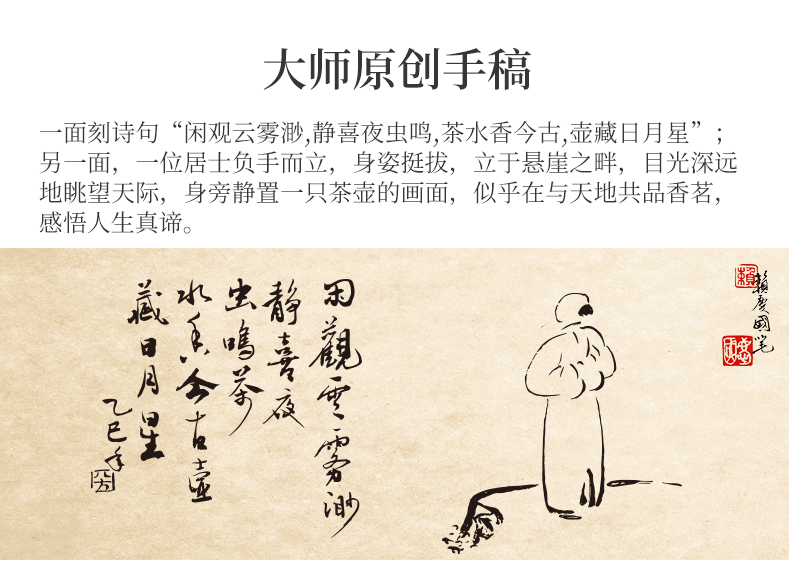 大师原创手稿
一面刻诗句“闲观云雾渺,静喜夜虫鸣,茶水香今古,壶藏日月星”;
另一面，一位居士负手而立，身姿挺拔，立于悬崖之畔，目光深远
地眺望天际，身旁静置一只茶壶的画面，似乎在与天地共品香茗，
感悟人生真谛。
閑觀雲雾渺
静喜夜
虫鳴茶
水香今古壶
藏日月星
乙巳年
賴慶國笔
賴